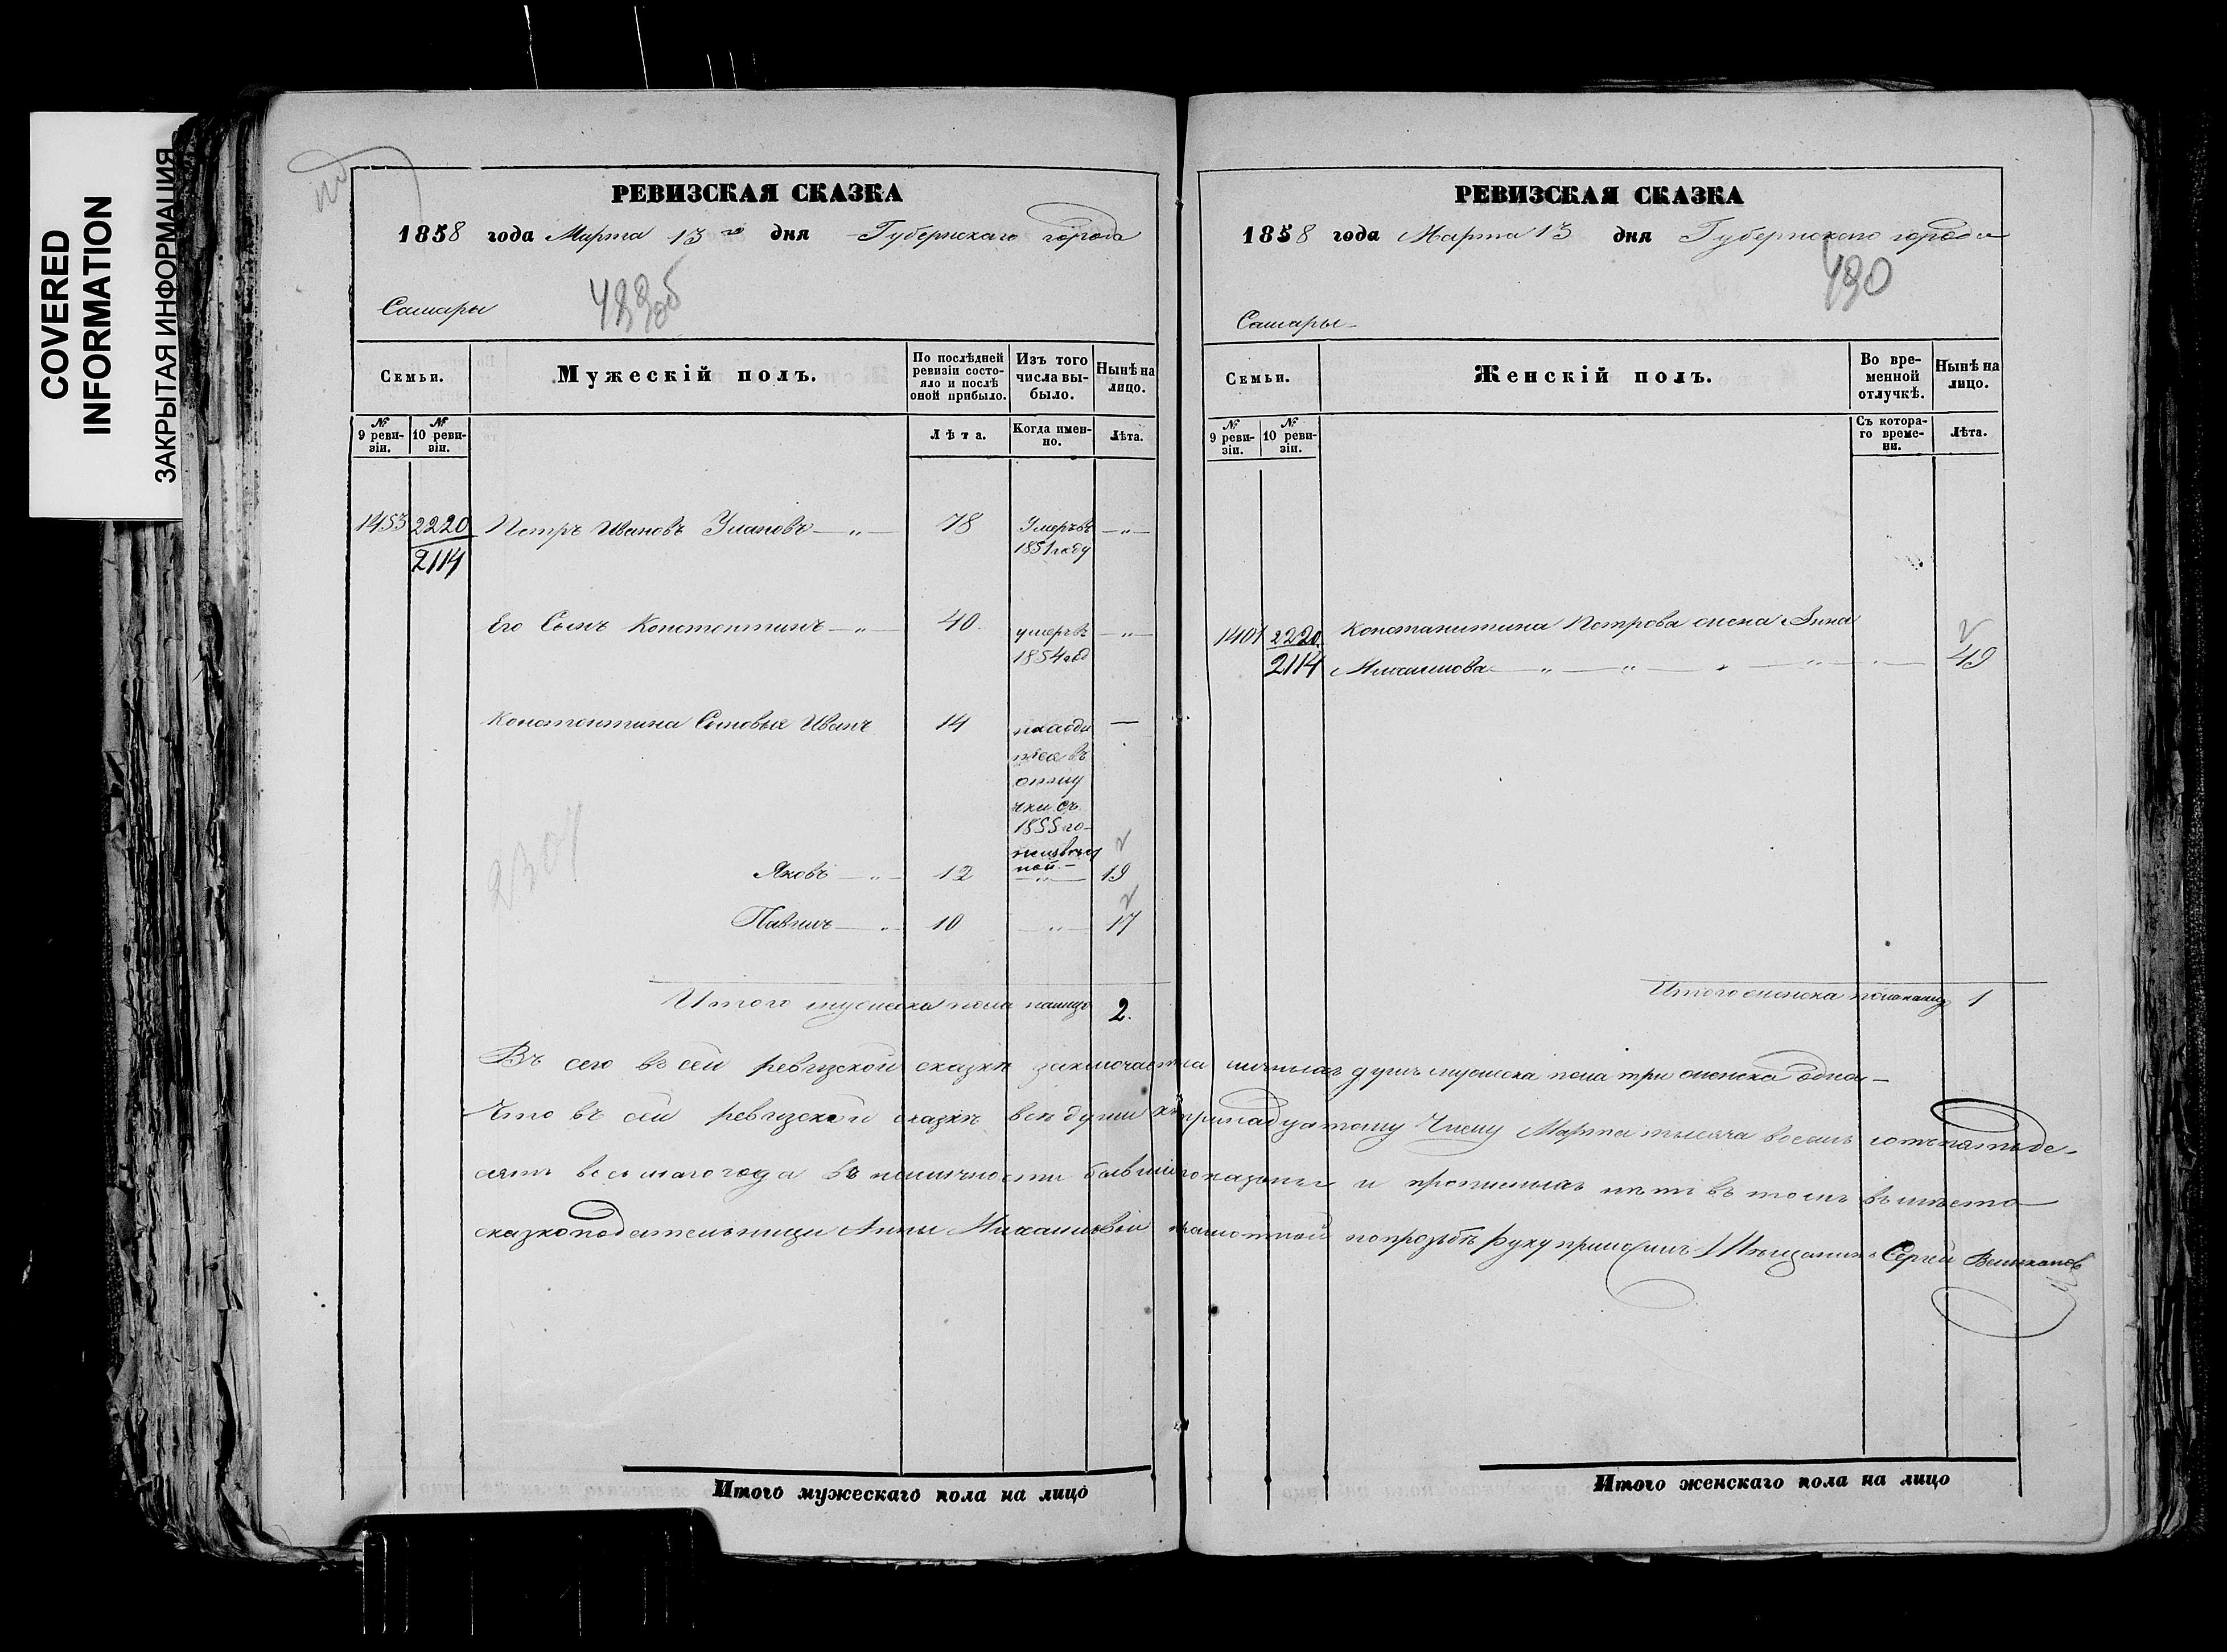 COVERED
INFORMATION
ЗАКРЫТАЯ ИНФОРМАЦИЯ
РЕВИЗСКАЯ СКАЗКА
1858 года Марта 13го дня Губернскаго города
489об
Самары
Семьи.
Мужескій полъ.
По послѣдней ревизіи состояло и послѣ оной прибыло.
Изъ того числа выбыло.
Нынѣ на лицо.
№ 9 ревизіи.
№ 10 ревизіи.
Лѣта.
Когда именно.
Лѣта.
1453 2220 Петръ Ивановъ Улановъ —„— 78 Умеръ въ —„—
2114 1851 году
Его Сынъ Константинъ —„— 40 умеръ въ —„—
1854 год
Константина Сыновья Иванъ 14 находи —
тся въ
отлу
чки съ
1855 го-
неизвест
ной —
Яковъ —„— 12 —„— 19
2307
Павелъ —„— 10 —„— 17
Итого мужеска пола налицо 2.
РЕВИЗСКАЯ СКАЗКА
1858 года Марта 13 дня Губернскаго города
490
Самары
Семьи.
Женскій полъ.
Во временной отлучкѣ.
Нынѣ на лицо.
№ 9 ревизіи.
№ 10 ревизіи.
Съ котораго времени.
Лѣта.
1401 2220 Константина Петрова жена Анна
2114 Михайлова 49
Итого женска пола налицо 1
Въ сего въ сей ревизской сказки заключается личныхъ душъ мужеска пола три женска одна —
Что въ сей ревизской сказкѣ всѣ души къ тринадцатому Числу Марта тысяча восемь сотъ пятьде-
сятъ восьмаго года въ наличности бывшія показаны и прописныхъ нѣтъ въ томъ въ мѣсто
сказкоподательницы Анны Михайловой неграмотной по прозьбѣ руку приложилъ Мѣщанинъ Сергей
Итого мужескаго пола на лицо
Итого женскаго пола на лицо